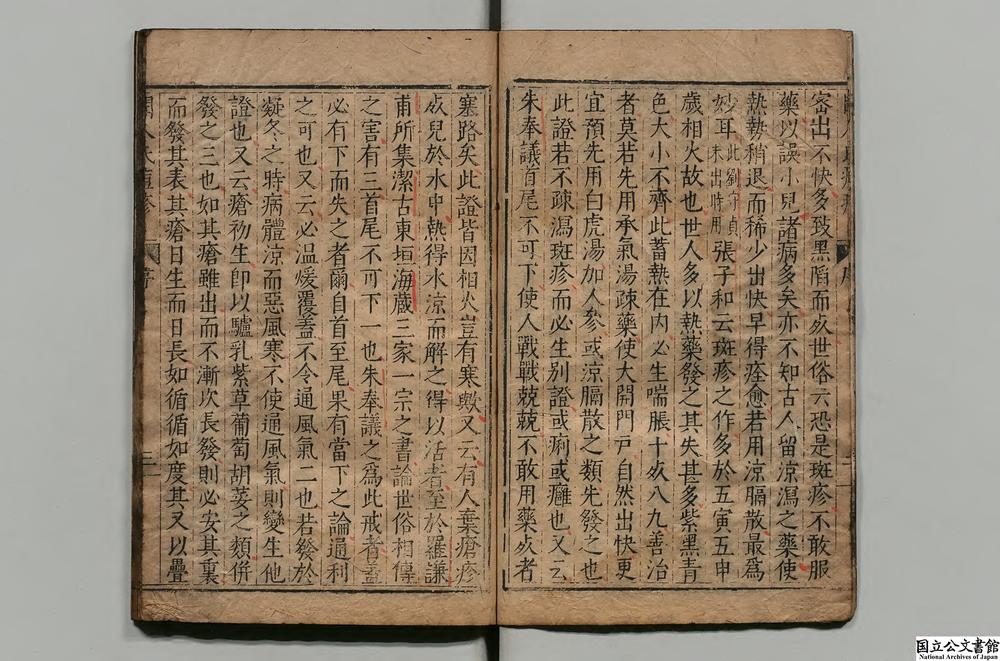 密出不快多致黑陷而死世俗云恐是斑疹不敢服
藥以誤小兒諸病多矣亦不知古人留涼瀉之藥使
熱勢稍退而稀少出快早得痊愈若用涼膈散最爲
妙耳此劉守眞未出時用張子和云斑疹之作多於五寅五申
歲相火故也世人多以熱藥發之其失甚多紫黑青
色大小不齊此蓄熱在内必生喘脹十死八九善治
者莫若先用承氣湯疎藥使大開門戸自然出快更
宜預先用白虎湯加人參或涼膈散之類先發之也
此證若不疎瀉斑疹而必生别證或痢或癰也又云
朱奉議首尾不可下使人戰戰兢兢不敢用藥死者
塞路矣此證皆因相火豈有寒歟又云有人棄瘡疹
死兒於水中熱得水涼而解之得以活者至於羅謙
甫所集潔古東垣海藏三家一宗之書論世俗相傳
之害有三首尾不可下一也朱奉議之爲此戒者蓋
必有下而失之者爾自首至尾果有當下之論通利
之可也又云必温煖覆蓋不令通風氣二也若發於
凝冬之時病體涼而惡風寒不使通風氣則變生他
證也又云瘡初生卽以驢乳紫草葡萄胡荽之類併
發之三也如其瘡雖出而不漸次長發則必安其裏
而發其表其瘡日生而日長如循循如度其又以疊
聞人氏痘疹
序
二
国立公文書館
National Archives of Japan